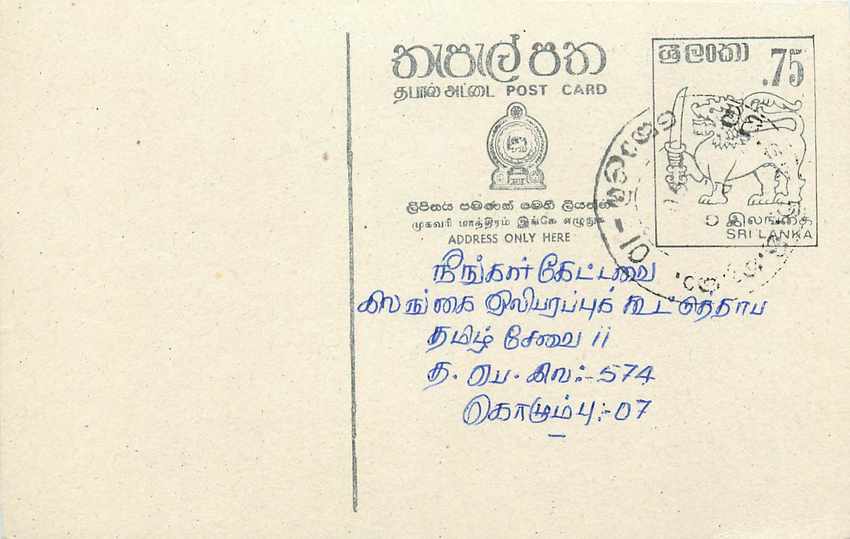 තැපැල් පත
தபால் அட்டை POST CARD
ලිපිනය පමණක් මෙහි ලියනු
முகவரி மாத்திரம் இங்கே எழுதுக
ADDRESS ONLY HERE
ශ්‍රී ලංකා
.75
இலங்கை
SRI LANKA
நீங்கள் கேட்டவை
இலங்கை ஒலிபரப்புக் கூட்டுத்தாப
தமிழ் சேவை II
த. பெ. இல:- 574
கொழும்பு:- 07